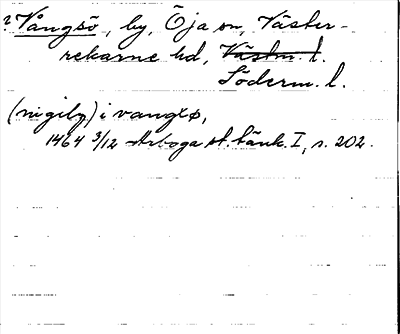 ? Vångsö, by, Öja sn, Väster-
rekarne hd, Västm. l.
Söderm. l.
(nigilz) i vangxø,
1464 3/12 Arboga st. tänk. I, s. 202.